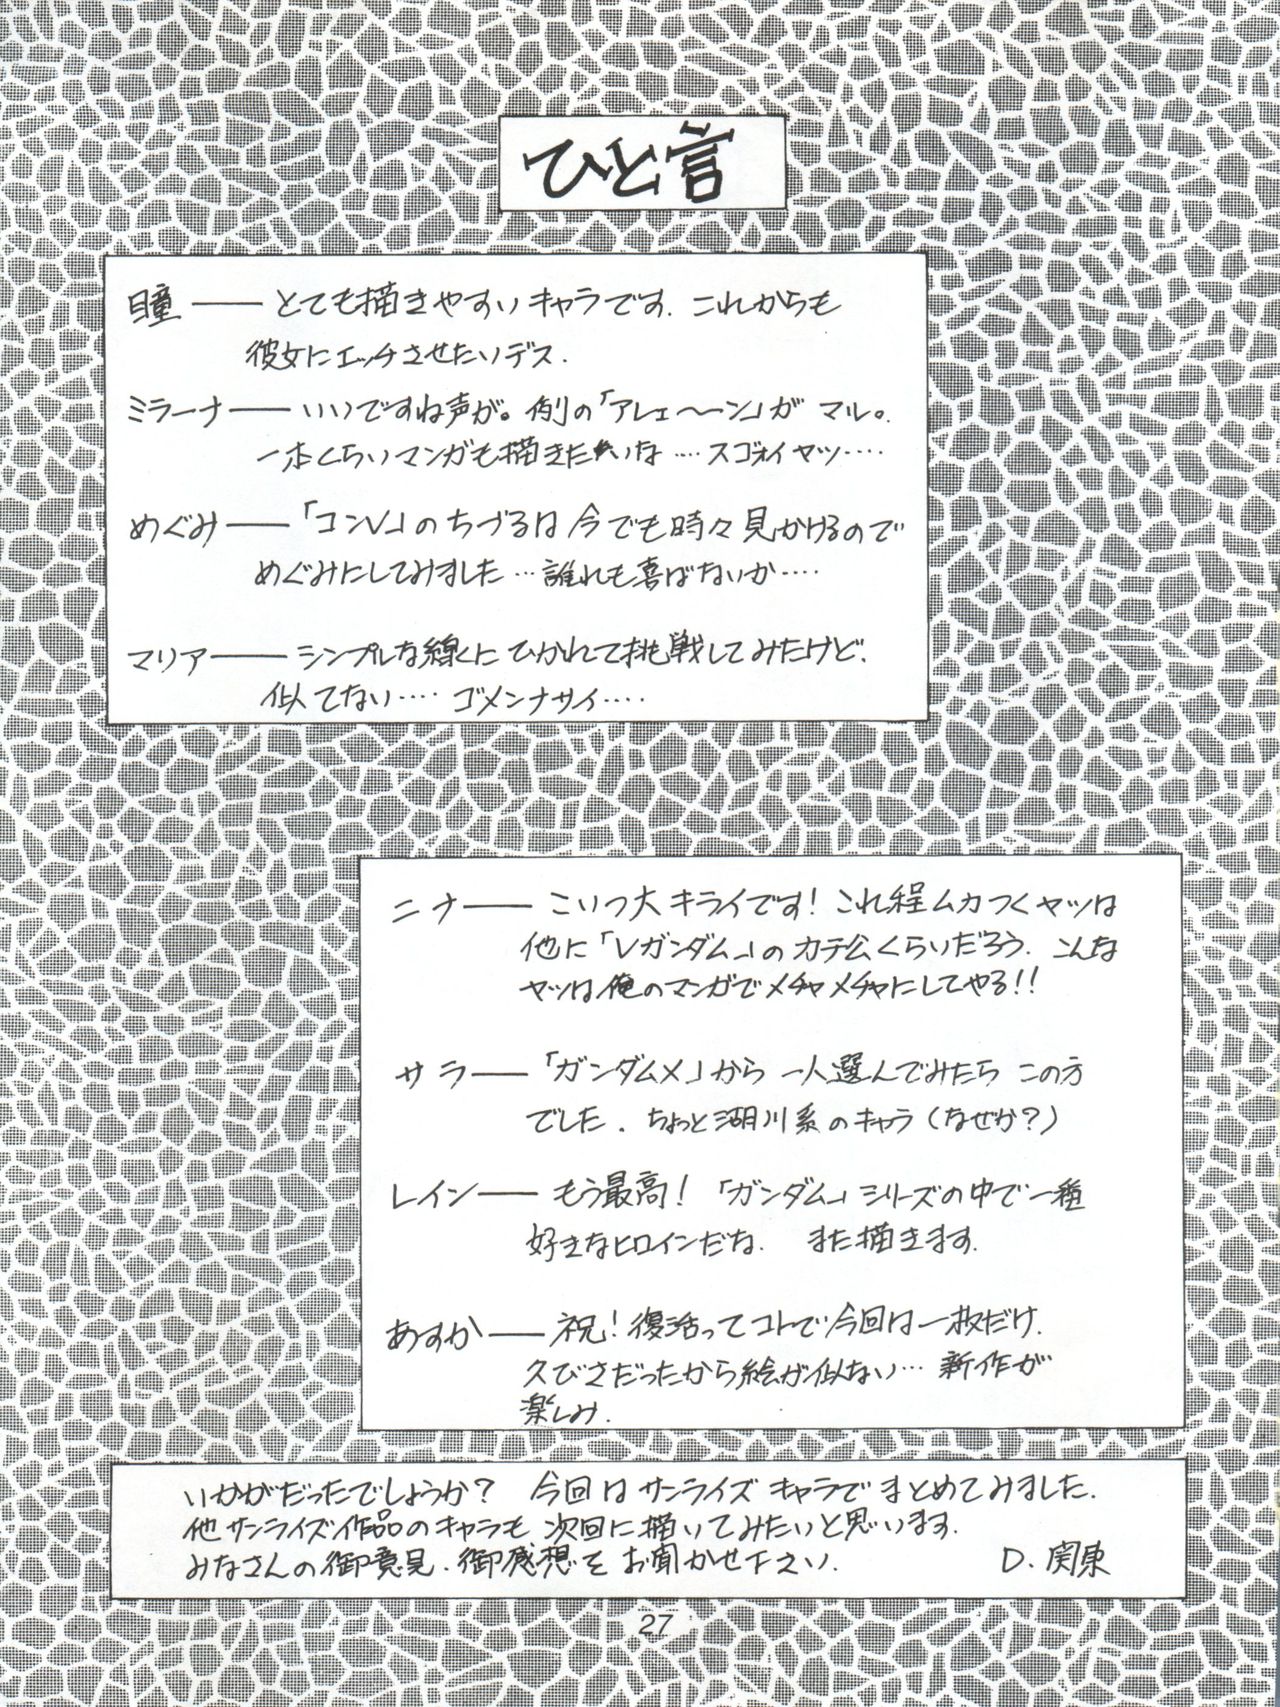 ひと言
瞳――とても描きやすいキャラです.これからも
彼女にエッチさせたいデス.
ミラーナ――いいですね声が。例の「アレェ〜〜ン」が マル。
一本くらいマンガも描きたいな‥‥スゴォイヤツ‥‥
めぐみ――「コンV」のちづるは今でも時々見かけるので
めぐみにしてみました…誰れも喜ばないか‥‥
マリア――シンプルな線にひかれて挑戦してみたけど.
似てない‥‥ ゴメンナサイ‥‥
ニナ――こいつ大キライです!これ程ムカつくヤツは
他に「Vガンダム」のカテ公くらいだろう. こんな
ヤツは俺のマンガでメチャメチャにしてやる!!
サラ――「ガンダムX」から 一人選んでみたら この方
でした. ちょっと湖川系のキャラ(なぜか?)
レイン――もう最高!「ガンダム」シリーズの中で一種
好きなヒロインだな. また描きます.
あすか――祝!復活ってコトで今回は一枚だけ.
久びさだったから絵が似ない… 新作が
楽しみ.
いかがだったでしょうか? 今回はサンライズ キャラでまとめてみました.
他サンライズ作品のキャラも 次回に描いてみたいと思います.
みなさんの御意見.御感想を お聞かせ下さい. D.関東
27